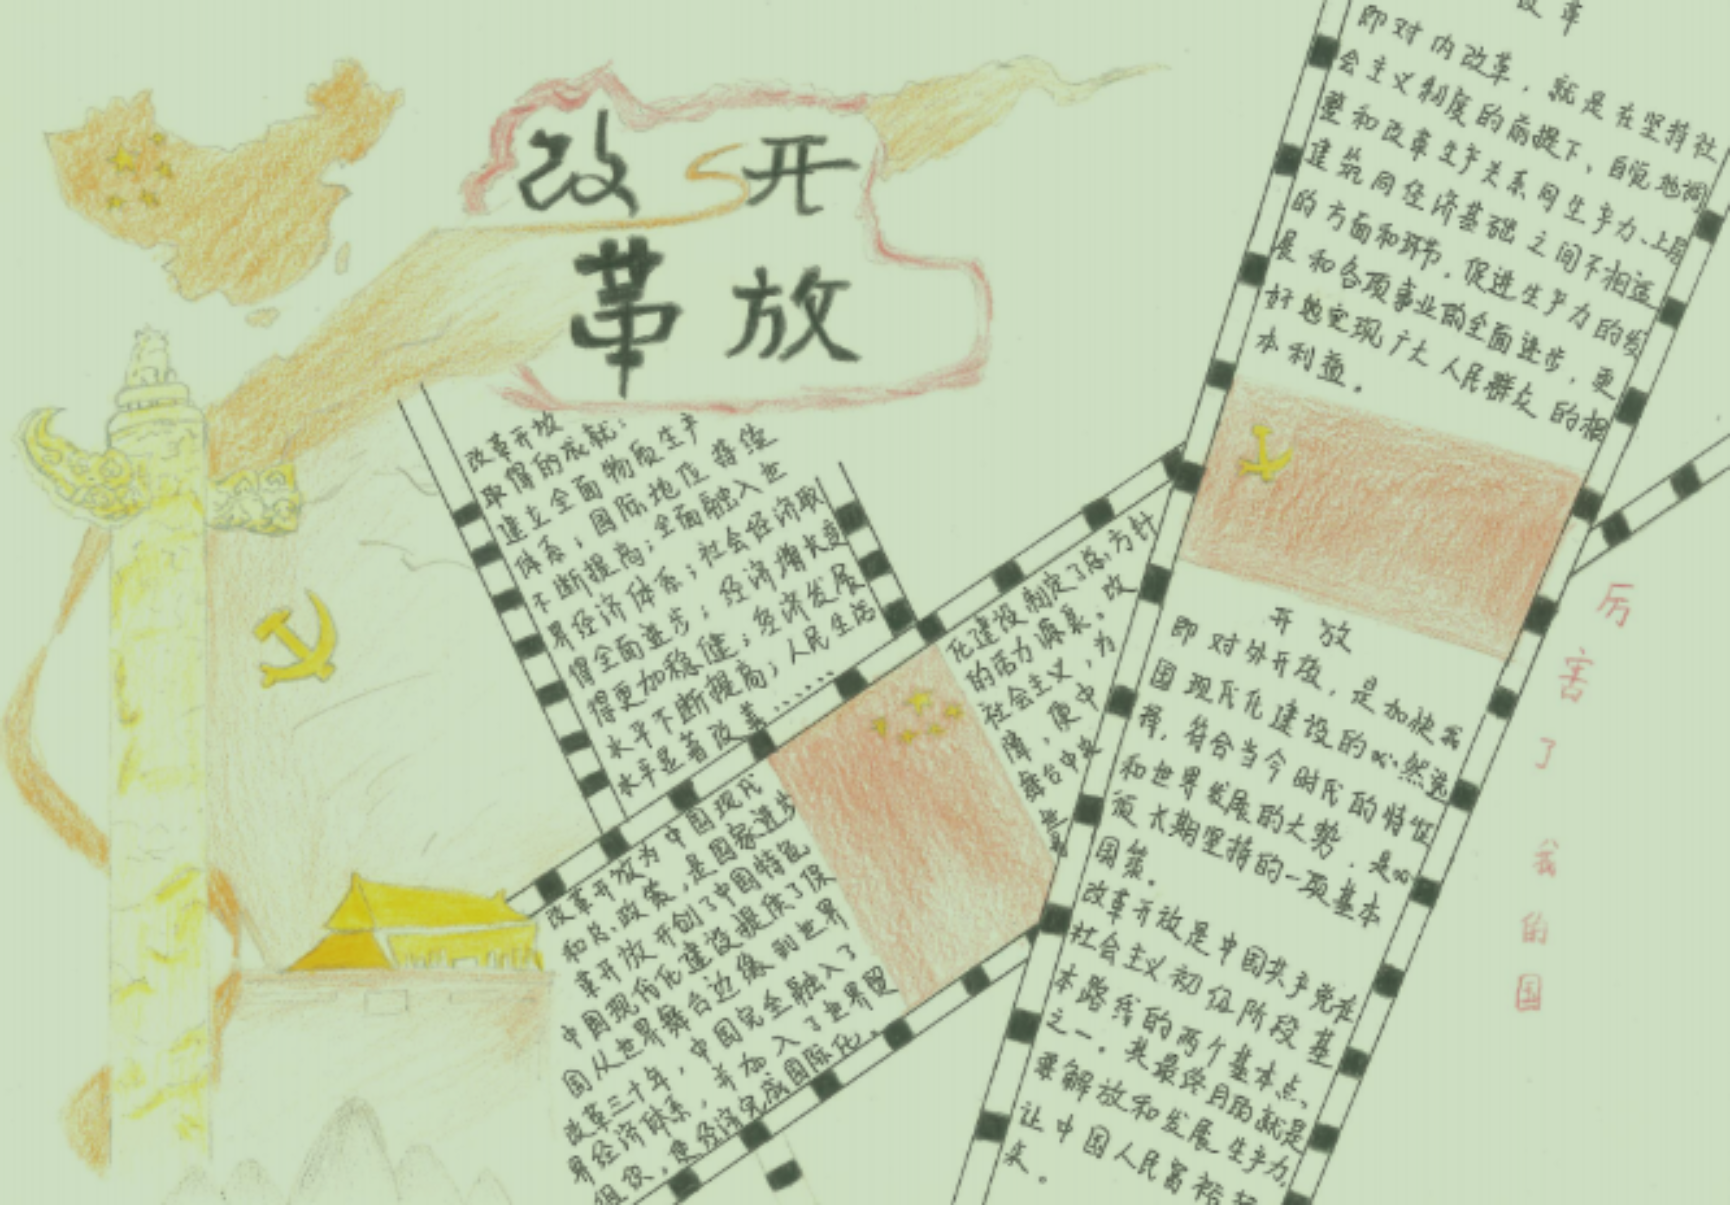 改开
革放
改革开放
取得的成就：
建立全面物质生产
体系；国际地位持续
不断提高；全面融入世
界经济体系；社会经济取
得全面进步；经济增长变
得更加稳健；经济发展
水平不断提高；人民生活
水平显著改善......
改革开放为中国现代
和总政策，是国家进步
革开放开创了中国特色
中国现代化建设提供了保
国从世界舞台边缘到世界
改革三十年，中国完全融入了
界经济体系，并加入了世界贸
组织，使经济完成国际化。
化建设制定了总方针
的活力源泉。改
社会主义，为
障，使中
舞台中央
改革
即对内改革，就是在坚持社
会主义制度的前提下、自觉地调
整和改革生产关系同生产力、上层
建筑同经济基础之间不相适
的方面和环节，促进生产力的发
展和各项事业的全面进步，更
好地实现广大人民群众的根
本利益。
开放
即对外开放，是加快我
国现代化建设的必然选
择，符合当今时代的特征
和世界发展的大势，是必
须长期坚持的一项基本
国策。
改革开放是中国共产党在
社会主义初级阶段基
本路线的两个基本点
之一。其最终目的就是
要解放和发展生产力，
让中国人民富裕起
来。
厉害了我的国